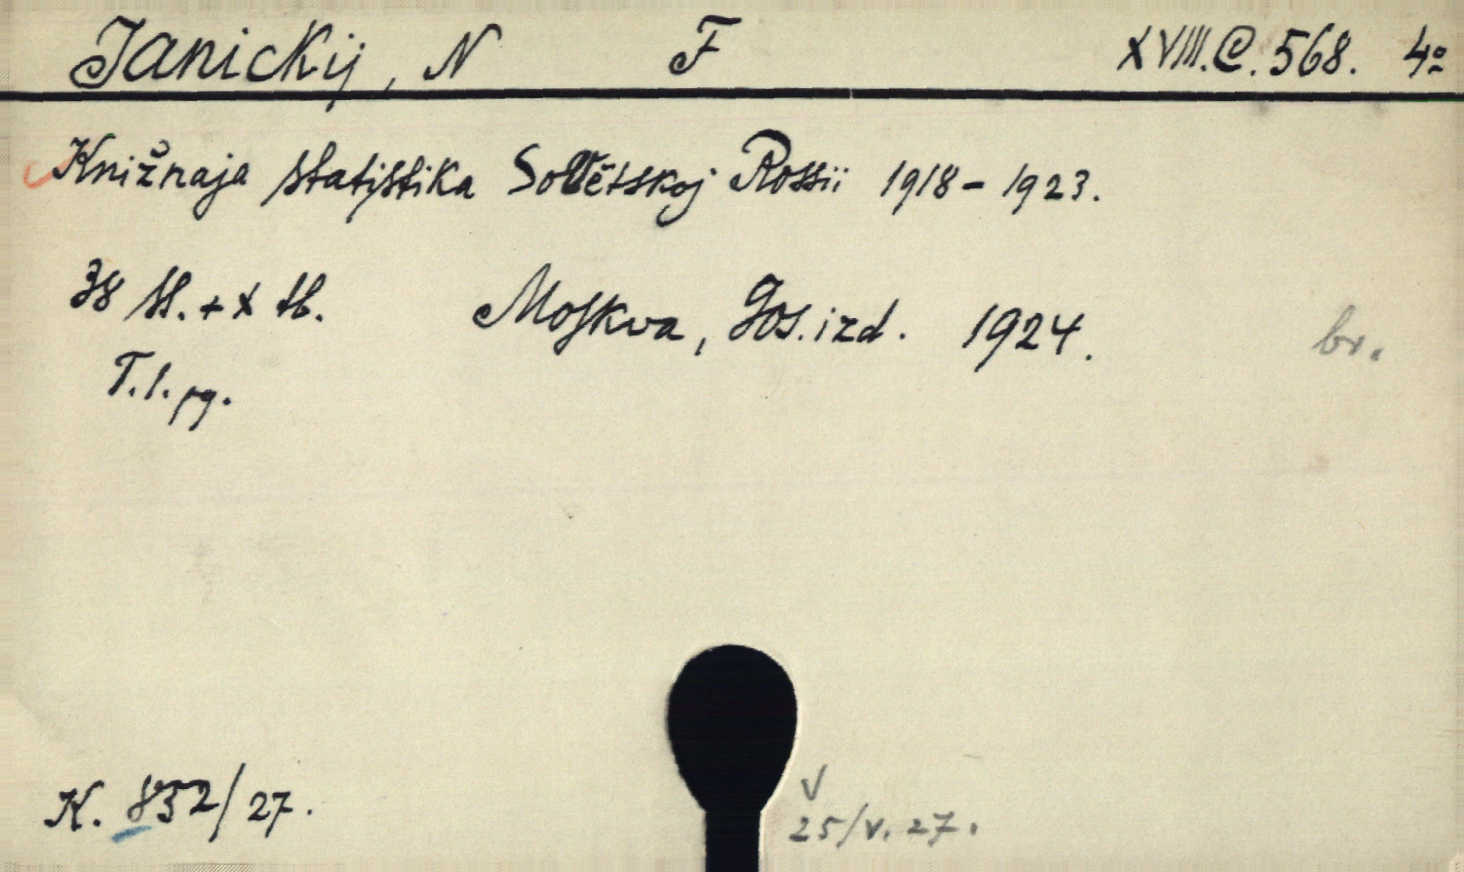 Janickij, N F XVIII.C.568. 4º
Knižnaja statistika Sovětskoj Rossii 1918-1923.
38 st. + X tb. Moskva, Gos.izd. 1924. br.
T.l.pg.
K. 852/27.
V
25/V.27.